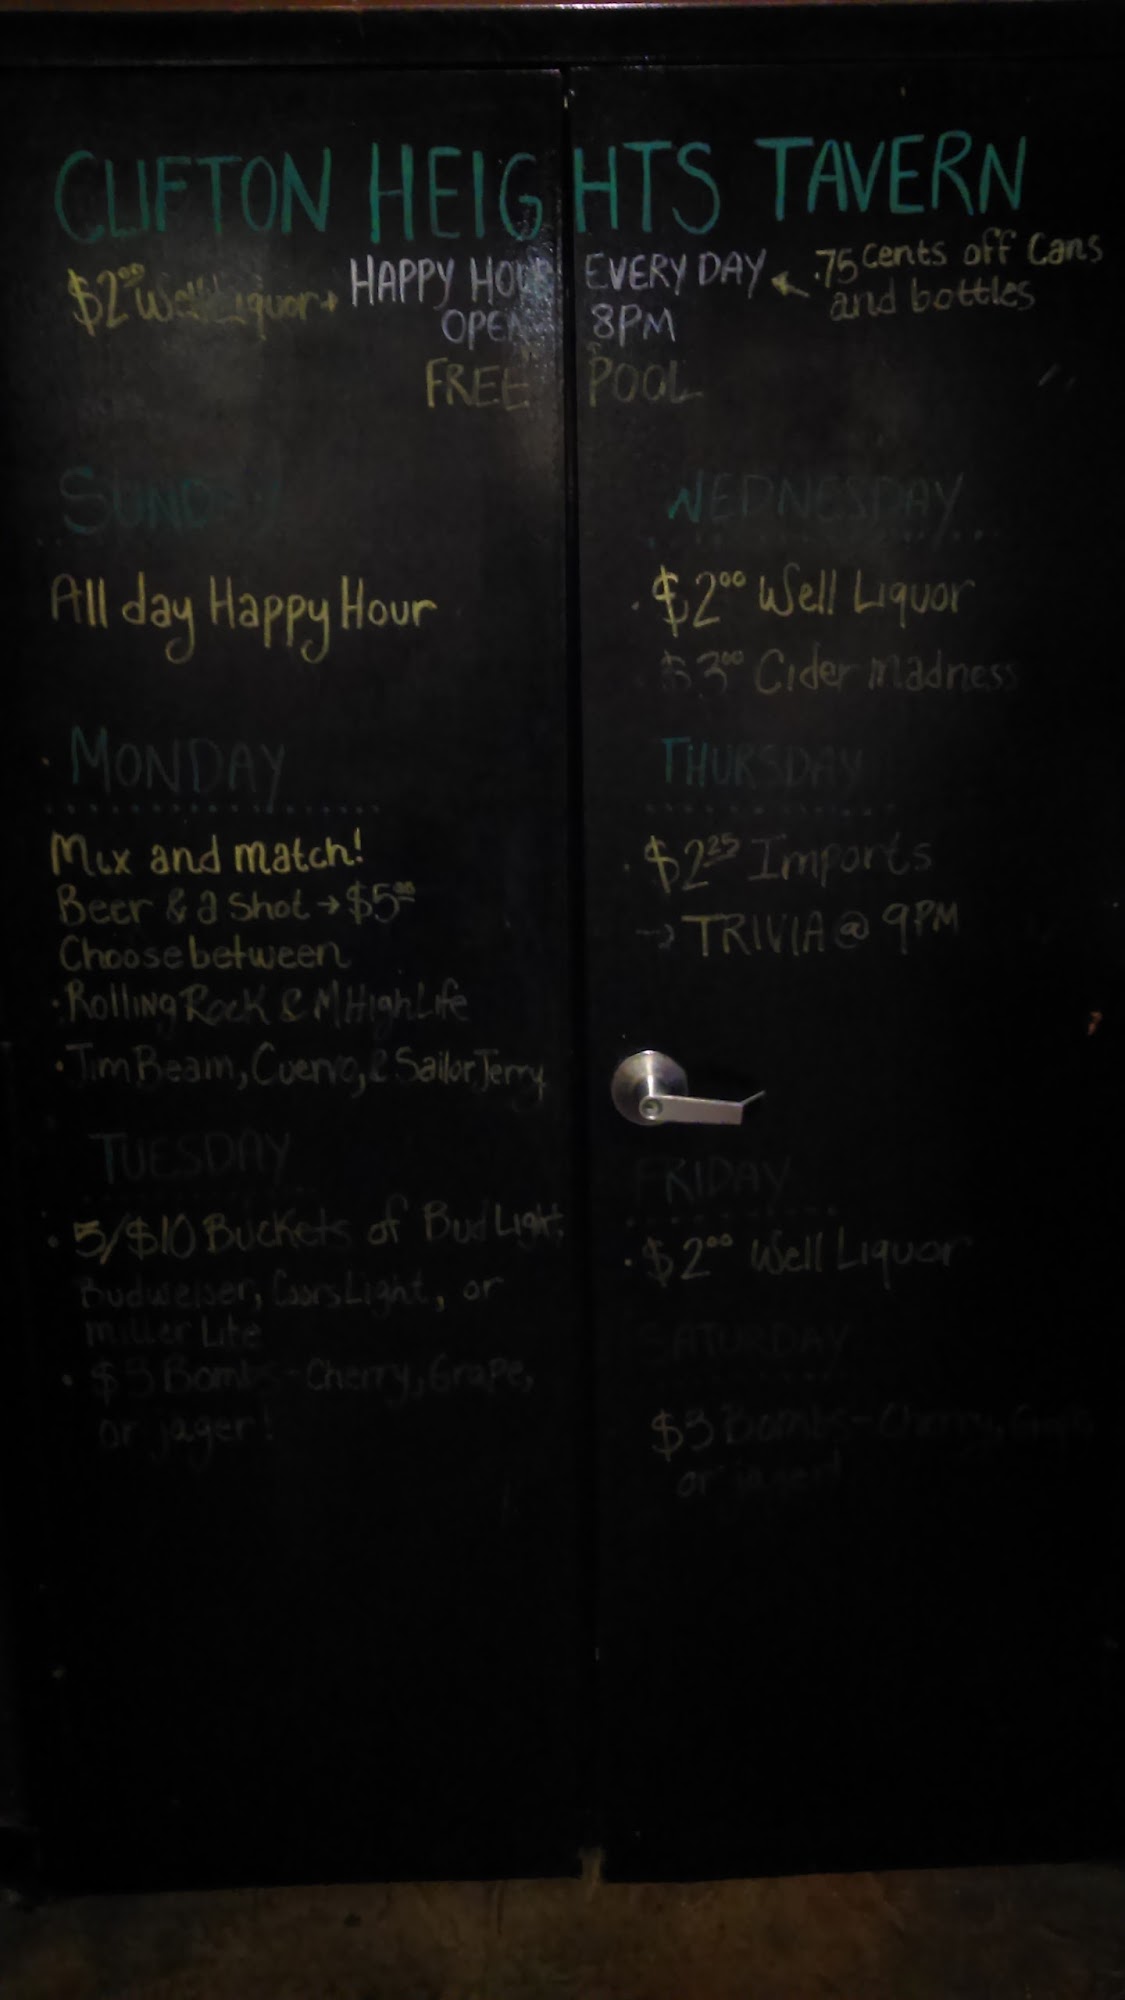 CLIFTON HEIGHTS TAVERN
$2.00 Well Liquor → HAPPY HOUR EVERY DAY ← .75 cents off cans
and bottles
OPEN 8PM
FREE POOL
SUNDAY
All day Happy Hour
MONDAY
Mix and match!
Beer & a shot → $5.00
Choose between
• Rolling Rock & M High Life
• Jim Beam, Cuervo, & Sailor Jerry
TUESDAY
• 5/$10 Buckets of Bud Light,
Budweiser, Coors Light, or
Miller Lite
• $3 Bombs - Cherry, Grape,
or jager!
WEDNESDAY
• $2.00 Well Liquor
$3.00 Cider madness
THURSDAY
• $2.25 Imports
→ TRIVIA @ 9PM
FRIDAY
• $2.00 Well Liquor
SATURDAY
$3 Bombs - Cherry, Grape
or jager!